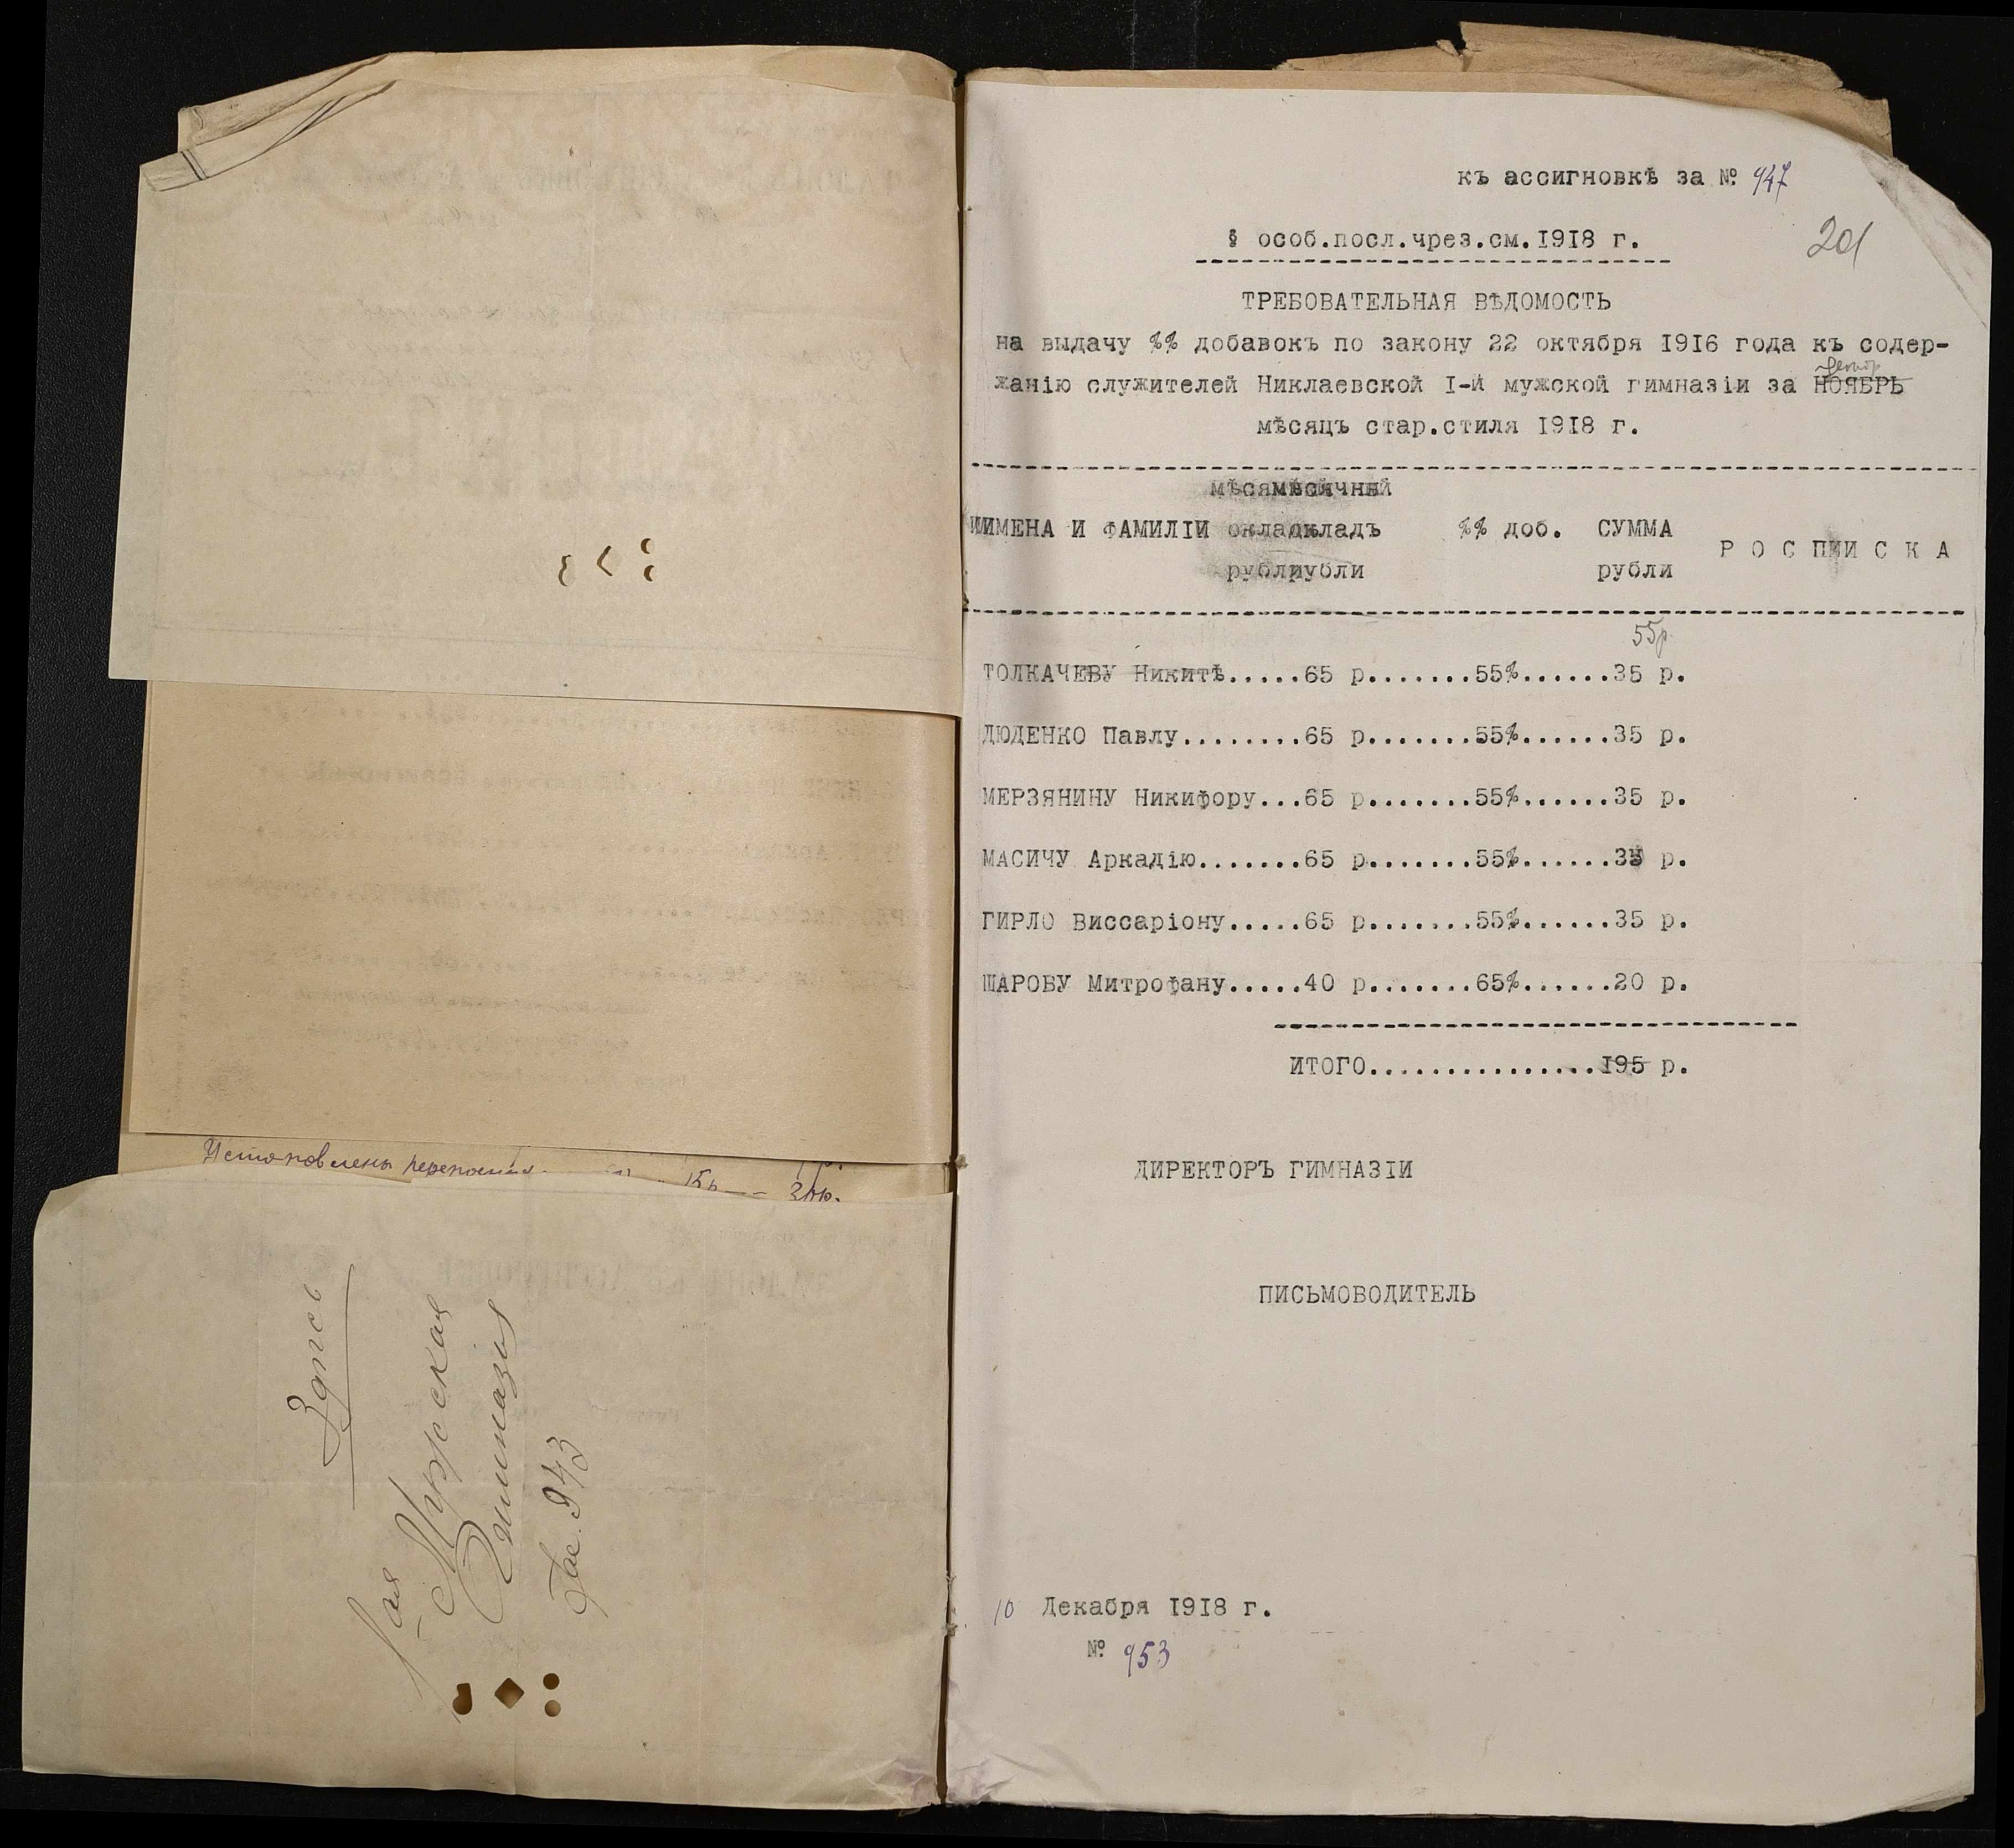 Установлены
Здѣсь
1-ая
Мужская
Гимназія
943
къ ассигновкѣ за № 947
201
§ особ.посл.чрез.см.1918 г.
ТРЕБОВАТЕЛЬНАЯ ВѢДОМОСТЬ
на выдачу %% добавокъ по закону 22 октября 1916 года къ содер-
жанію служителей Никлаевской I-й мужской гимназіи за НОЯБРЬ
мѣсяцъ стар.стиля 1918 г.
мѣсячный
ИМЕНА И ФАМИЛІИ окладъ %% доб. СУММА
Р О С П И С К А
рубли рубли
55р
ТОЛКАЧЕВУ Никитѣ.....65 р.......55%......35 р.
ДЮДЕНКО Павлу........65 р.......55%......35 р.
МЕРЗЯНИНУ Никифору...65 р.......55%......35 р.
МАСИЧУ Аркадію.......65 р.......55%......35 р.
ГИРЛО Виссаріону.....65 р.......55%......35 р.
ШАРОВУ Митрофану.....40 р.......65%......20 р.
ИТОГО...............195 р.
ДИРЕКТОРЪ ГИМНАЗІИ
ПИСЬМОВОДИТЕЛЬ
10 Декабря 1918 г.
№ 953